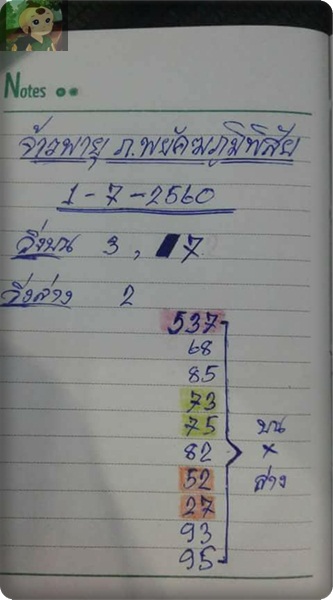 Notes
จ้าวพายุ ภ.พยัคฆภูมิพิสัย
1-7-2560
วิ่งบน 3, 7
วิ่งล่าง 2
537
68
85
73
75 บน
82 ×
52 ล่าง
27
93
95